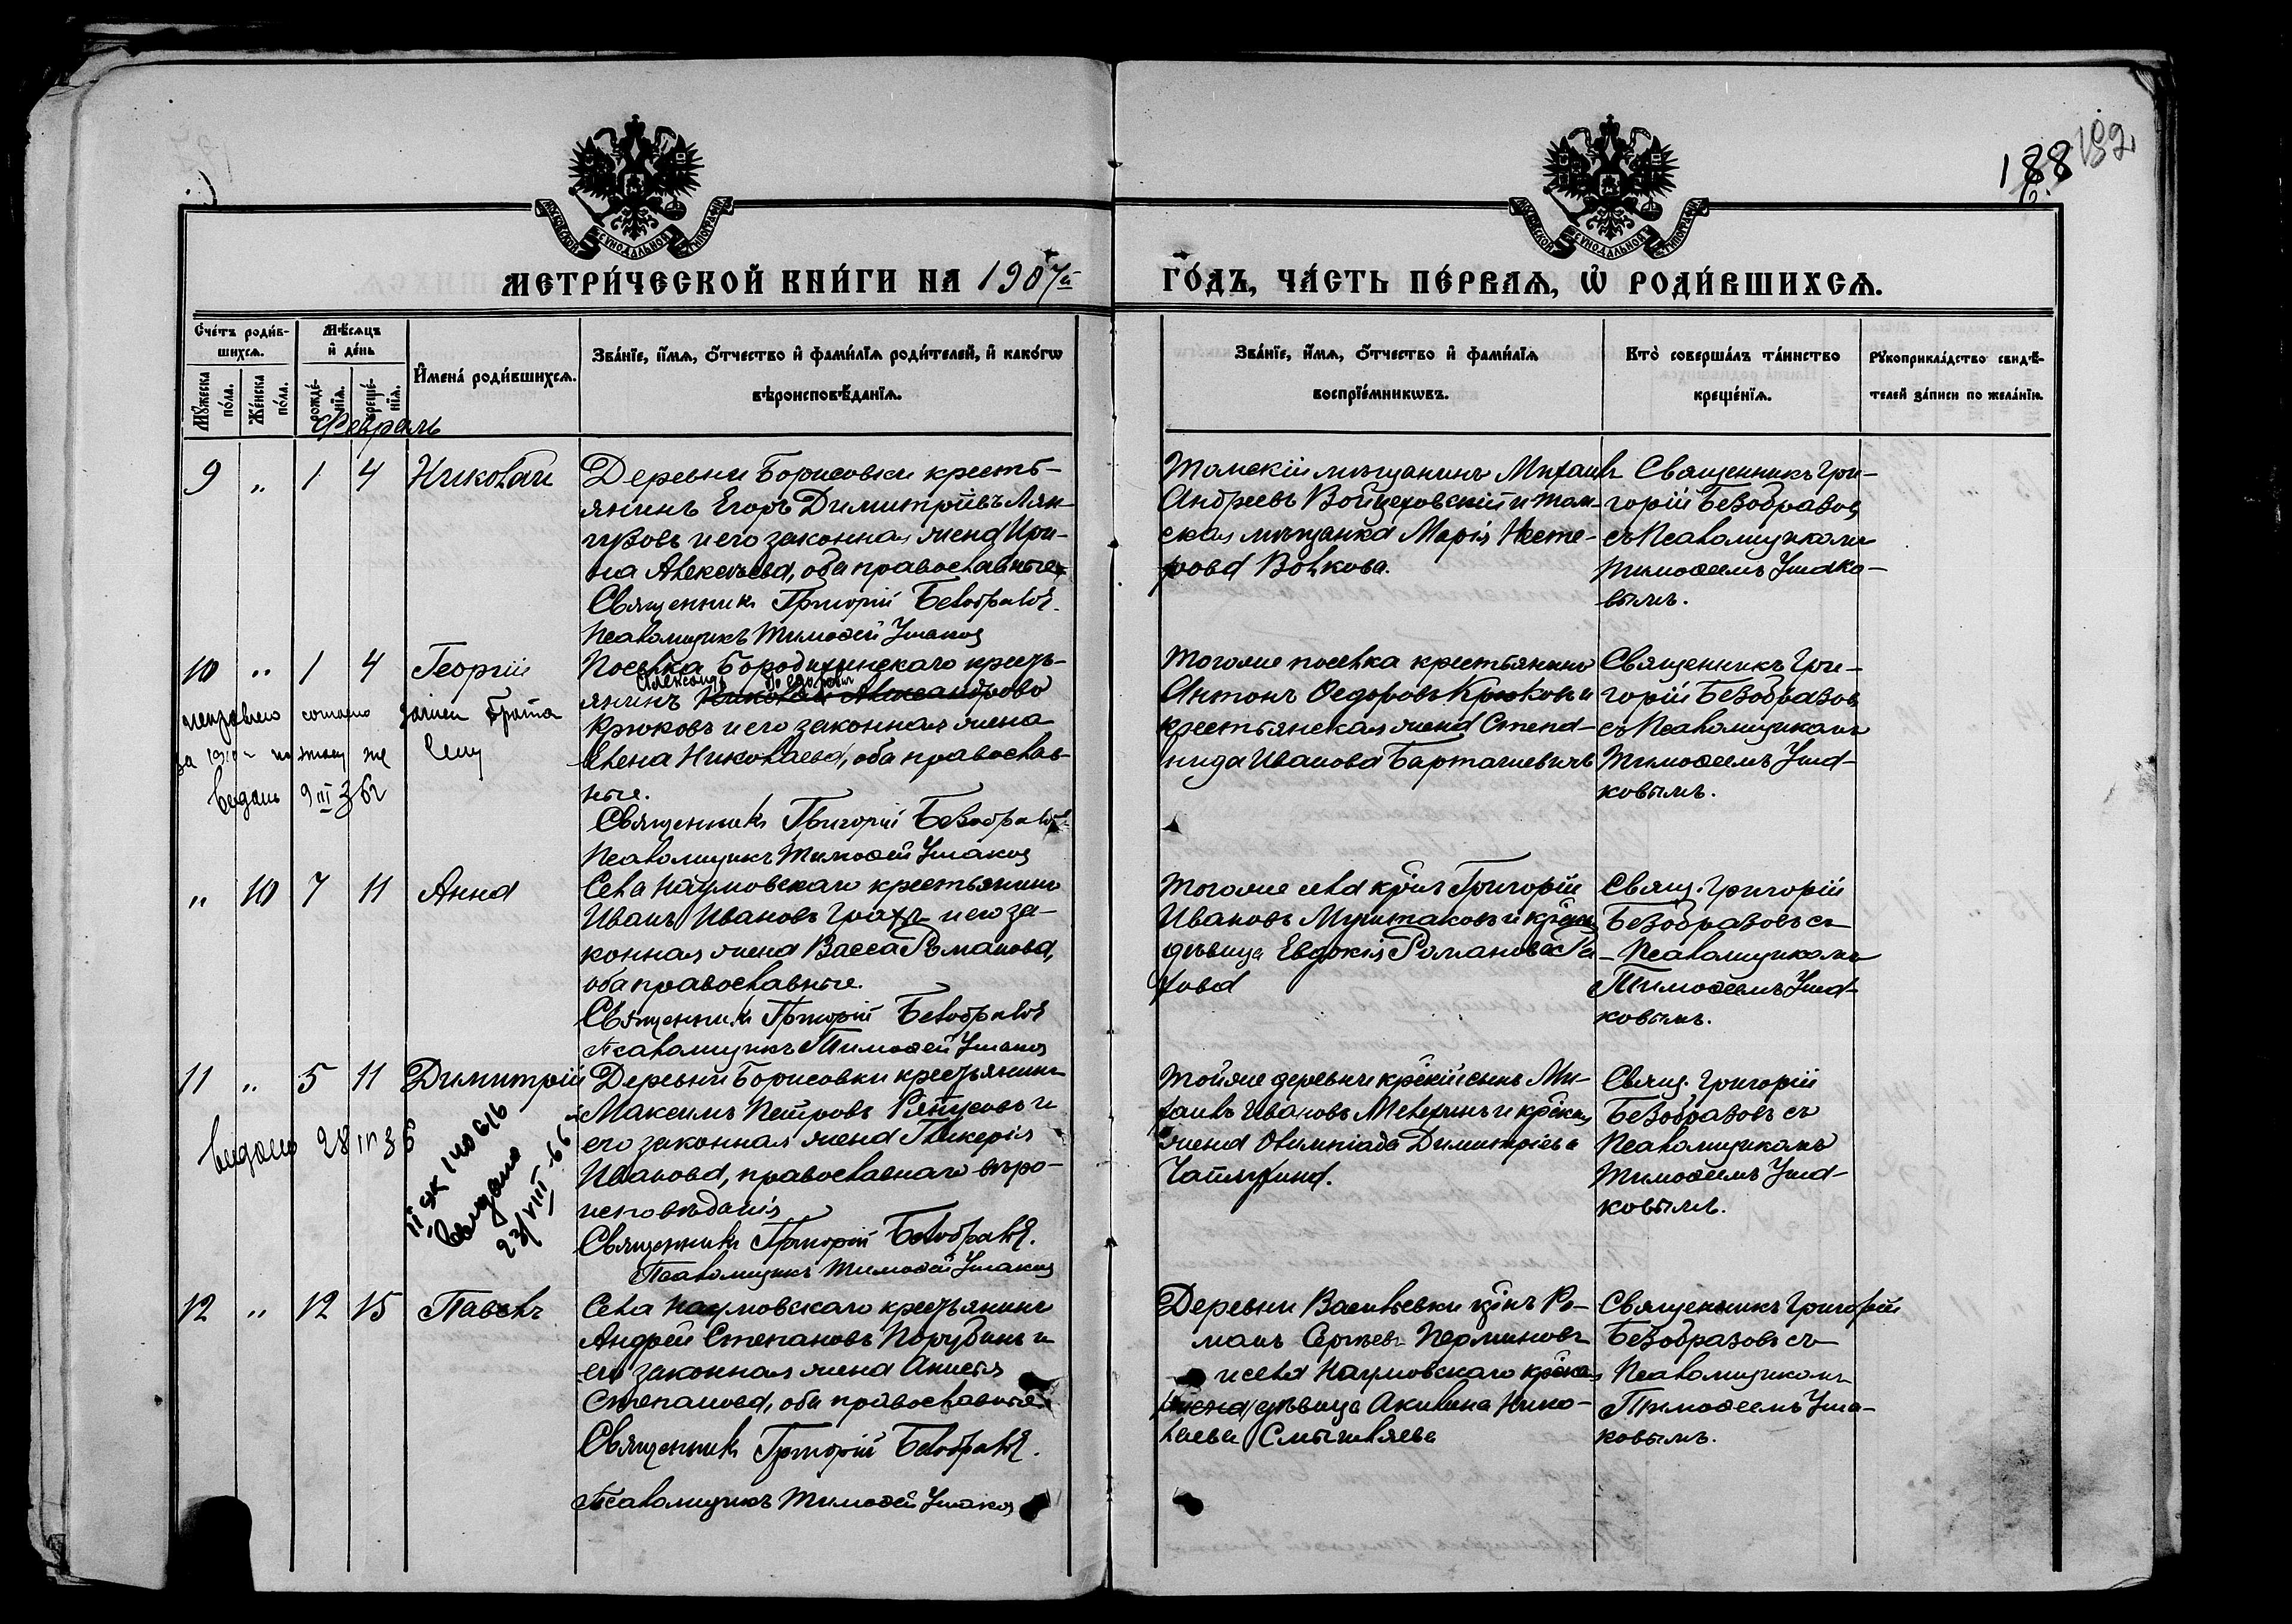 188
192
МОСКОВСКОЙ СѴНОДАЛЬНОЙ ТИПОГРАФІИ
МОСКОВСКОЙ СѴНОДАЛЬНОЙ ТИПОГРАФІИ
МЕТРИ́ЧЕСКОЙ КНИ́ГИ НА 1907й ГО́ДЪ, ЧА́СТЬ ПЕ́РВАѦ, Ѡ РОДИ́ВШИХСѦ.
Сче́тъ роди́в-
шихсѧ.
Мꙋ́жеска по́ла.
Же́нска по́ла.
Мѣ́сѧцъ
и де́нь
рожде́-
нїѧ.
креще́-
нїѧ.
И҆мена̀ роди́вшихсѧ.
Зва́нїе, и҆́мѧ, ѻ҆́тчество и҆ фами́лїѧ роди́телей, и҆ како́гѡ
вѣроисповѣ́данїѧ.
Зва́нїе, и҆́мѧ, ѻ҆́тчество и҆ фами́лїѧ
воспрїе́мникѡвъ.
Кто̀ соверша́лъ та́инство
креще́нїѧ.
Рꙋкоприкла́дство свидѣ́-
телей за́писи по жела́нїю.
Февраль
9 " 1 4 Николай
Деревни Борисовки кресть-
янинъ Егоръ Димитріевъ Лян-
гузовъ и его законная жена Ири-
на Алексѣева, оба православные
Священникъ Григорій Безобразовъ.
Псаломщикъ Тимоѳей Ушаковъ
Томскій мѣщанинъ Михаилъ
Андреевъ Войцеховскій и том-
ская мѣщанка Марія Несте-
рова Волкова.
Священникъ Гри-
горій Безобразовъ
съ Псаломщикомъ
Тимоѳеемъ Ушако-
вымъ.
10 " 1 4 Георгій
исправлено согласно записи брата
за по тому же
выдано 9 III 36г
Поселка Бородихинскаго кресть-
Александръ Ѳедоровъ
янинъ Николай Александровъ
Крюковъ и его законная жена
Елена Николаева, оба православ-
ные.
Священникъ Григорій Безобразовъ
Псаломщикъ Тимоѳей Ушаковъ
Того же поселка крестьянинъ
Антонъ Ѳедоровъ Крюковъ и
крестьянская жена Степа-
нида Иванова Барташевичъ
Священникъ Гри-
горій Безобразовъ
съ Псаломщикомъ
Тимоѳеемъ Уша-
ковымъ.
" 10 7 11 Анна
Села Наумовскаго крестьянинъ
Иванъ Ивановъ и его за-
конная жена Васса Романова,
оба православные.
Священникъ Григорій Безобразовъ
Псаломщикъ Тимоѳей Ушаковъ
Того же села кр̃нъ Григорій
Ивановъ Муштаковъ и кр̃ская
дѣвица Евдокія Романова
Свящ. Григорій
Безобразовъ съ
Псаломщикомъ
Тимоѳеемъ Уша-
ковымъ.
11 " 5 11 Димитрій
выдано 28 III 36
выдано
23/VIII-66
Деревни Борисовки крестьянинъ
Максимъ Петровъ и
его законная жена Гликерія
Иванова, православнаго вѣро-
исповѣданія
Священникъ Григорій Безобразовъ.
Псаломщикъ Тимоѳей Ушаковъ
Той же деревни кр̃скій сынъ Ми-
хаилъ Ивановъ Мелехинъ и кр̃ская
жена Олимпіада Димитріева
Чаплухина.
Свящ. Григорій
Безобразовъ съ
Псаломщикомъ
Тимоѳеемъ Уша-
ковымъ.
12 " 12 15 Павелъ
Села Наумовскаго крестьянинъ
Андрей Степановъ Порубинъ и
его законная жена Анисія
Степанова, оба православные
Священникъ Григорій Безобразовъ.
Псаломщикъ Тимоѳей Ушаковъ
Деревни Васильевки кр̃нъ Ро-
манъ Сергѣевъ Перминовъ
и села Наумовскаго кр̃ская
жена дѣвица Акилина Нико-
лаева Смышляева
Священникъ Григорій
Безобразовъ съ
Псаломщикомъ
Тимоѳеемъ Уша-
ковымъ.